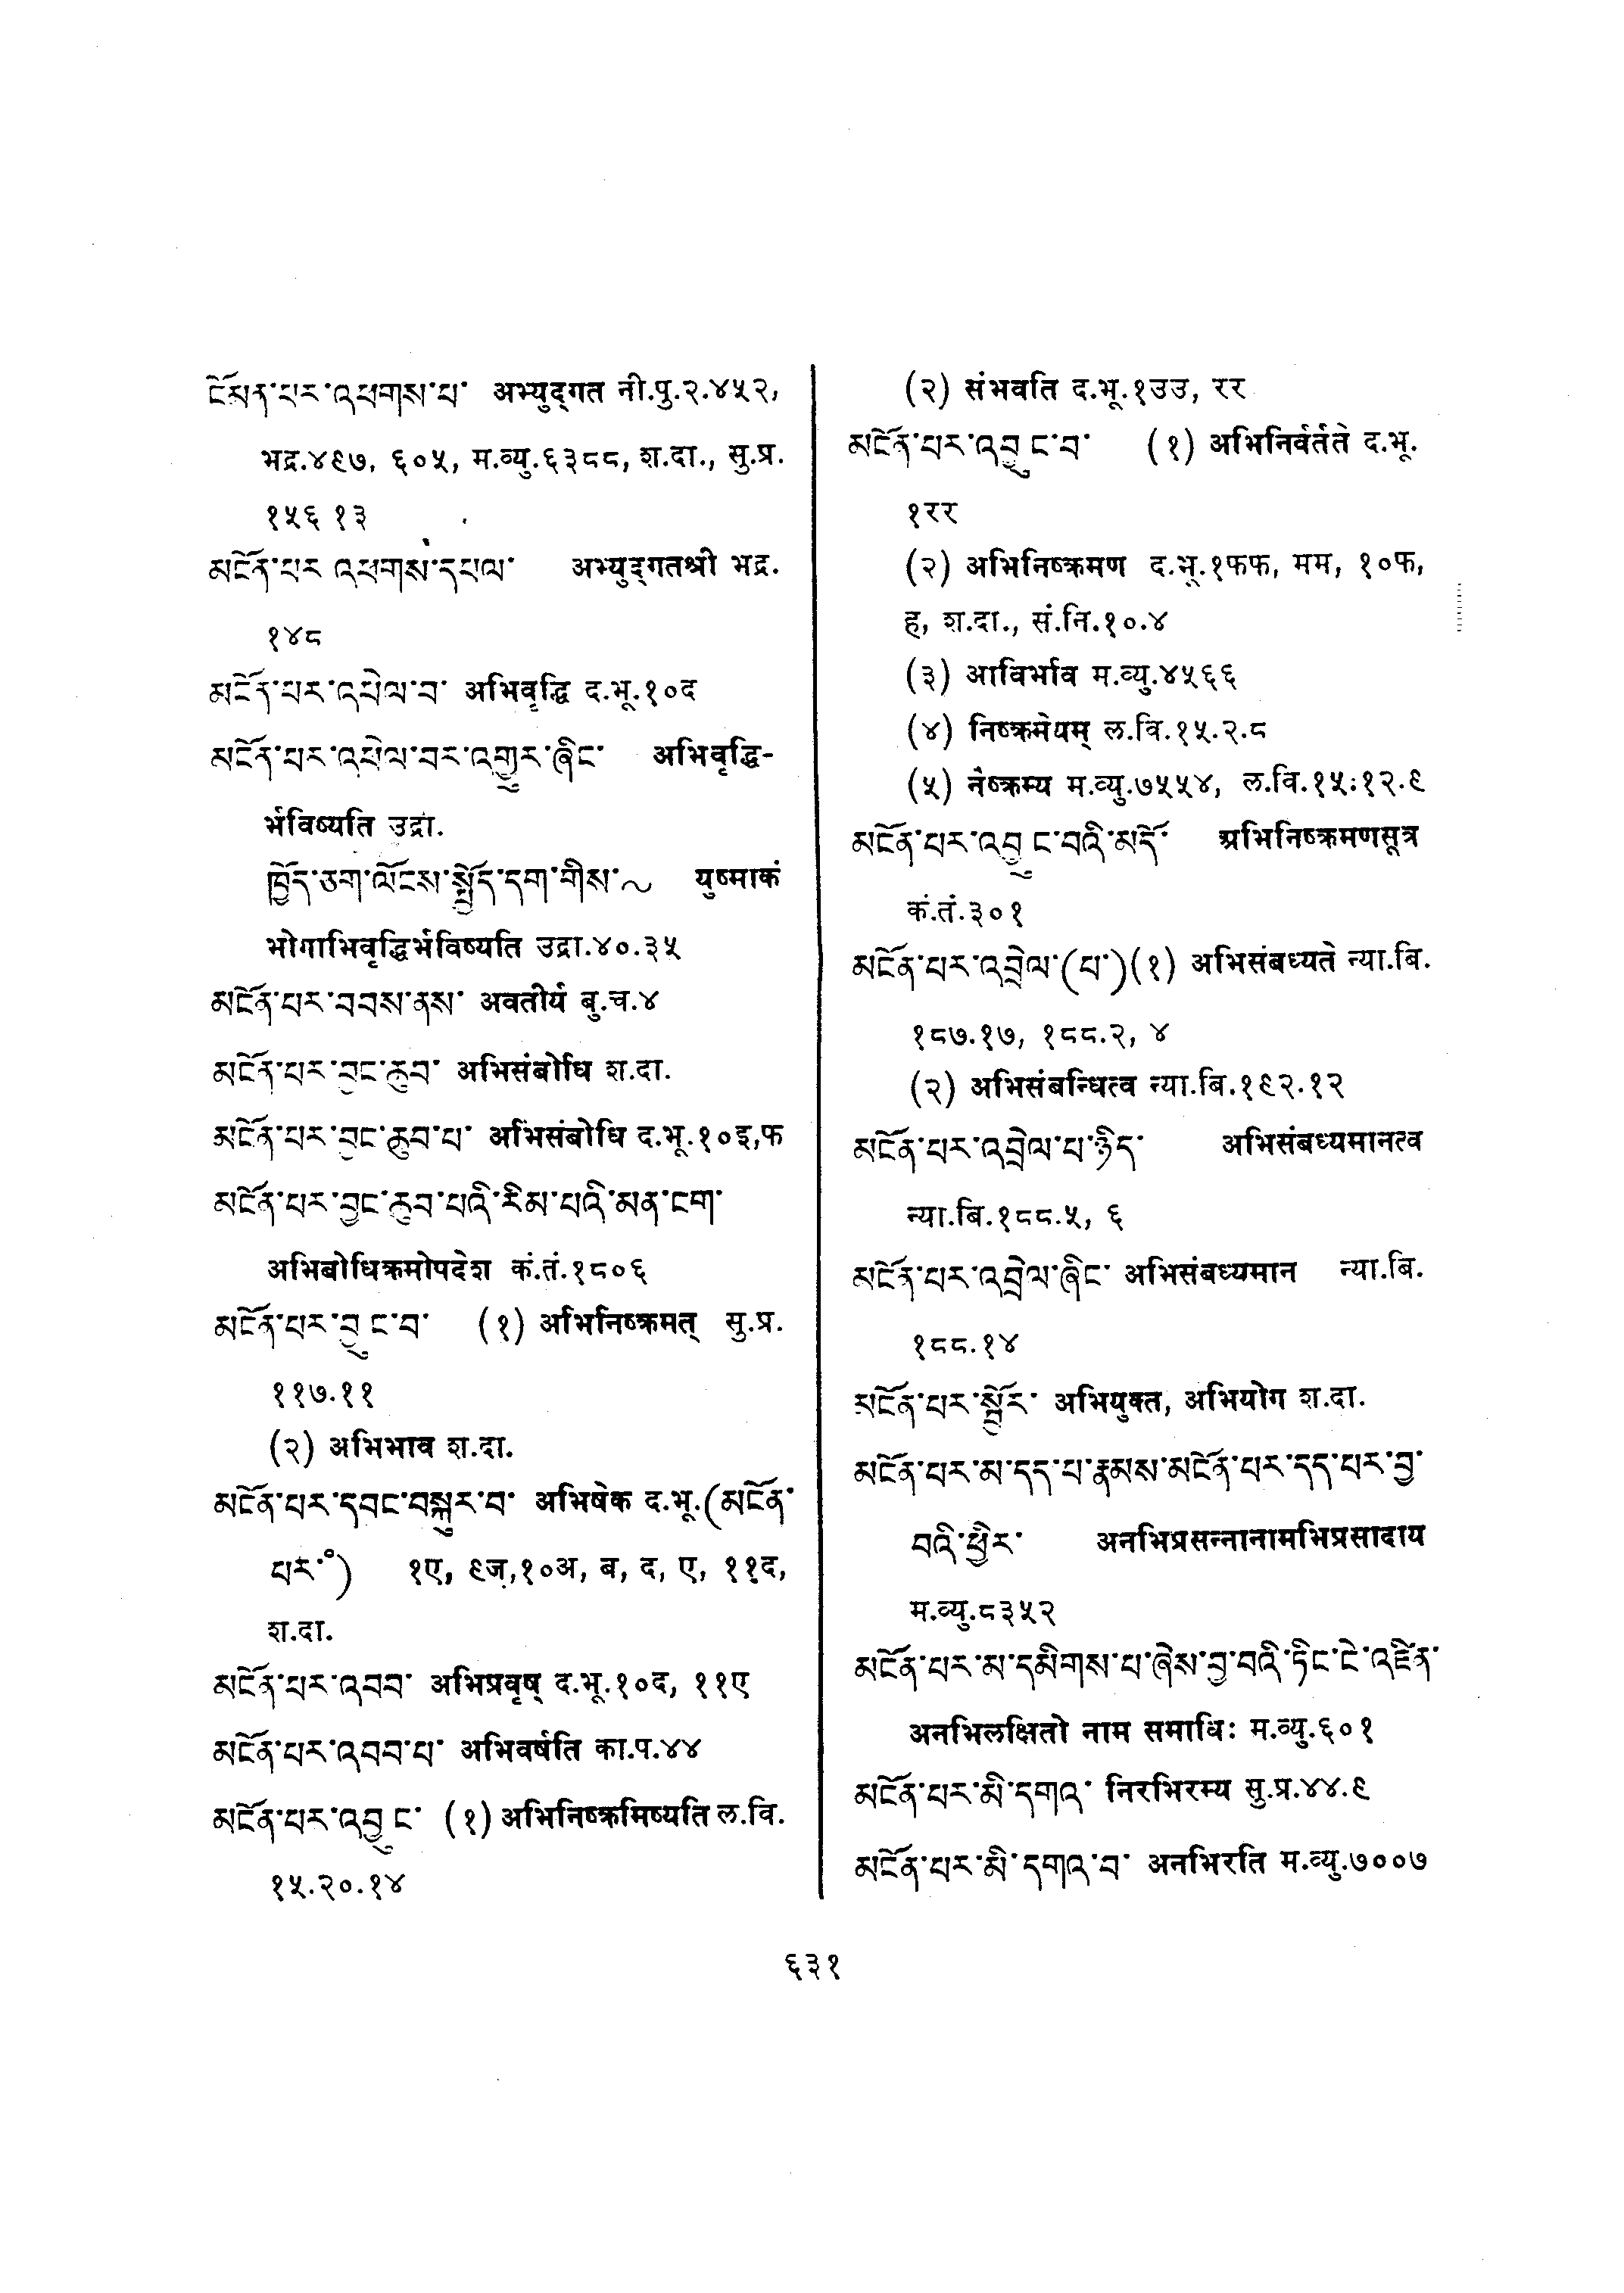 ངོམན་པར་འཕགས་པ་ अभ्युद्गत नी.पु.२.४५२,
भद्र.४९७, ६०५, म.व्यु.६३८८, श.दा., सु.प्र.
१५६ १३
མངོན་པར འཕགས་དཔལ་ अभ्युद्गतश्री भद्र.
१४८
མངོན་པར་འཕེལ་བ་ अभिवृद्धि द.भू.१०द
མངོན་པར་འཕེལ་བར་འགྱུར་ཞིང་ अभिवृद्धि-
र्भविष्यति उद्रा.
ཁྱོད་ཅག་ལོངས་སྤྱོད་དག་གིས་~ युष्माकं
भोगाभिवृद्धिर्भविष्यति उद्रा.४०.३५
མངོན་པར་བབས་ནས་ अवतीर्य बु.च.४
མངོན་པར་བྱང་ཆུབ་ अभिसंबोधि श.दा.
མངོན་པར་བྱང་ཆུབ་པ་ अभिसंबोधि द.भू.१०इ,फ
མངོན་པར་བྱང་ཆུབ་པའི་རིམ་པའི་མན་ངག་
अभिबोधिक्रमोपदेश कं.तं.१८०६
མངོན་པར་བྱུང་བ་ (१) अभिनिष्क्रमत् सु.प्र.
११७.११
(२) अभिभाव श.दा.
མངོན་པར་དབང་བསྐུར་བ་ अभिषेक द.भू.(མངོན་
པར་°) १ए, ९ज,१०अ, ब, द, ए, ११द,
श.दा.
མངོན་པར་འབབ་ अभिप्रवृष् द.भू.१०द, ११ए
མངོན་པར་འབབ་པ་ अभिवर्षति का.प.४४
མངོན་པར་འབྱུང་ (१) अभिनिष्क्रमिष्यति ल.वि.
१५.२०.१४
(२) संभवति द.भू.१उउ, रर
མངོན་པར་འབྱུང་བ་ (१) अभिनिर्वर्तते द.भू.
१रर
(२) अभिनिष्क्रमण द.भू.१फफ, मम, १०फ,
ह, श.दा., सं.नि.१०.४
(३) आविर्भाव म.व्यु.४५६६
(४) निष्क्रमेयम् ल.वि.१५.२.८
(५) नैष्क्रम्य म.व्यु.७५५४, ल.वि.१५:१२.९
མངོན་པར་འབྱུང་བའི་མདོ་ अभिनिष्क्रमणसूत्र
कं.तं.३०१
མངོན་པར་འབྲེལ་(པ་)(१) अभिसंबध्यते न्या.बि.
१८७.१७, १८८.२, ४
(२) अभिसंबन्धित्व न्या.बि.१९२.१२
མངོན་པར་འབྲེལ་པ་ཉིད་ अभिसंबध्यमानत्व
न्या.बि.१८८.५, ६
མངོན་པར་འབྲེལ་ཞིང་ अभिसंबध्यमान न्या.बि.
१८८.१४
མངོན་པར་སྦྱོར་ अभियुक्त, अभियोग श.दा.
མངོན་པར་མ་དད་པ་རྣམས་མངོན་པར་དད་པར་བྱ་
བའི་ཕྱིར་ अनभिप्रसन्नानामभिप्रसादाय
म.व्यु.८३५२
མངོན་པར་མ་དམིགས་པ་ཞེས་བྱ་བའི་ཏིང་ངེ་འཛིན་
अनभिलक्षितो नाम समाधिः म.व्यु.६०१
མངོན་པར་མི་དགའ་ निरभिरम्य सु.प्र.४४.९
མངོན་པར་མི་དགའ་བ་ अनभिरति म.व्यु.७००७
६३१